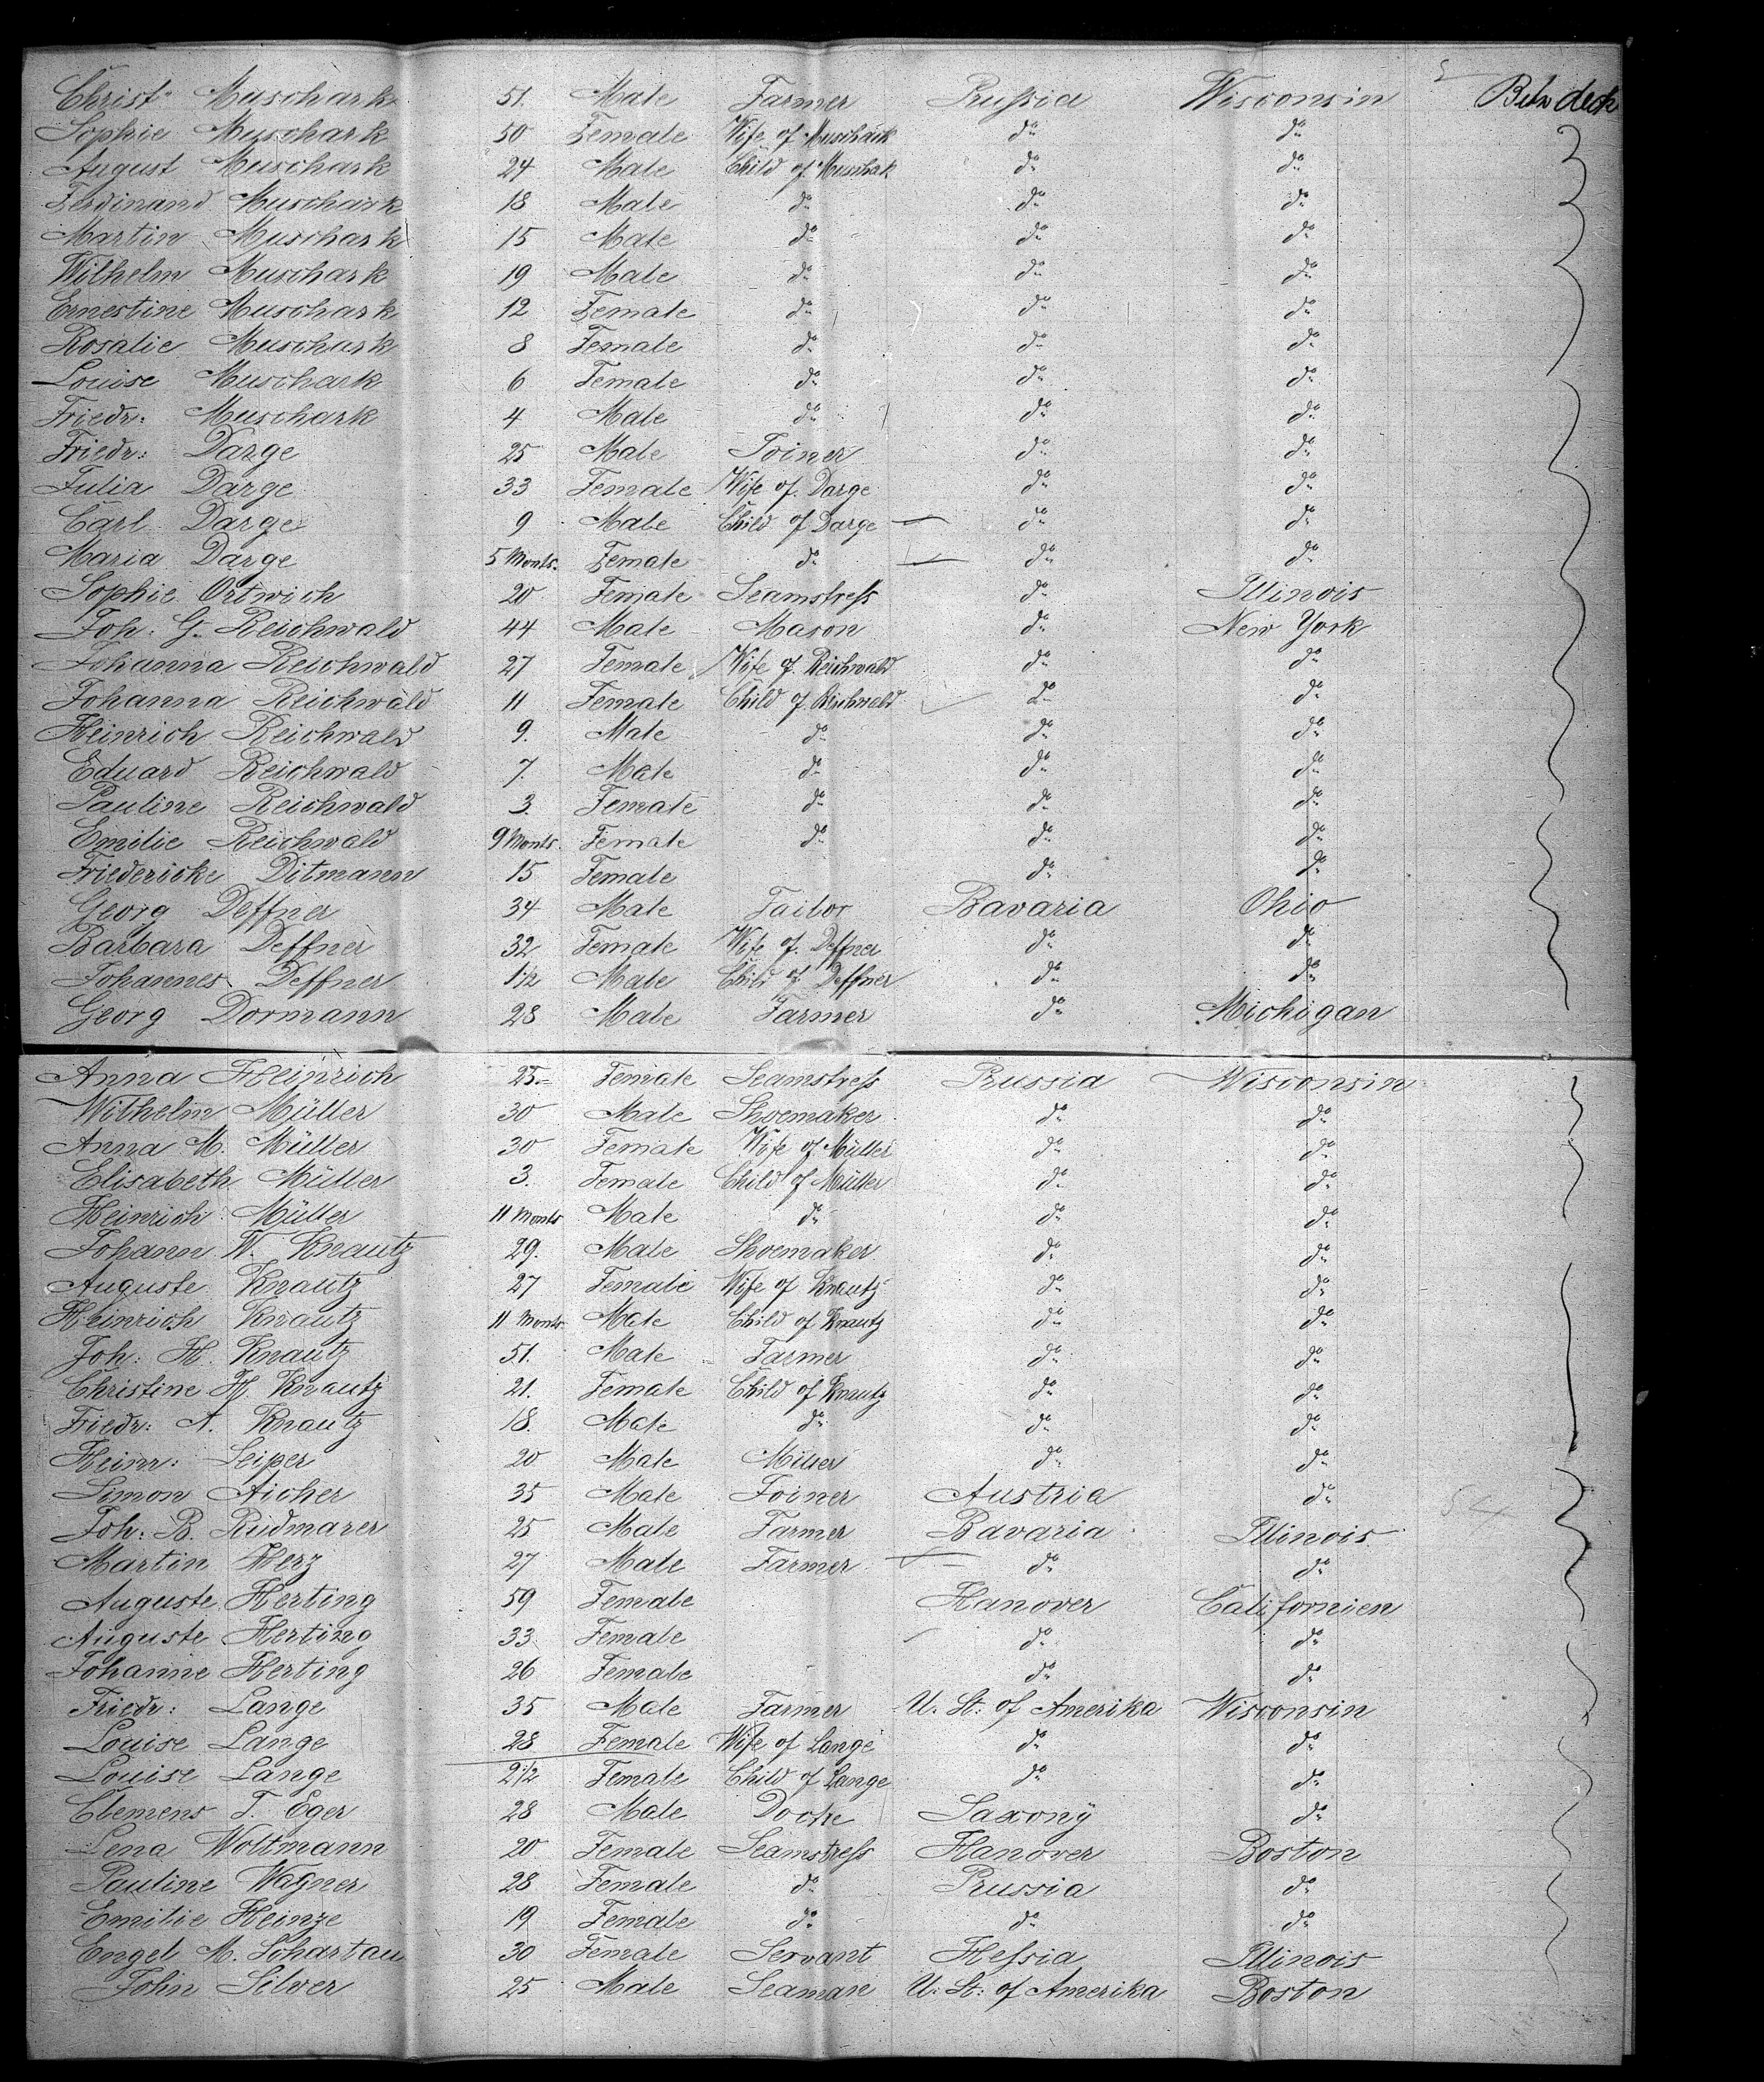 Christ. Muschark 51. Male Farmer Prussia Wisconsin Betw deck
Sophie Muschark 50 Female Wife of Muschark do do
August Muschark 24 Male Child of Muschak do do
Ferdinand Muschark 18 Male do do do
Martin Muschark 15 Male do do do
Wilhelm Muschark 19 Male do do do
Ernestine Muschark 12 Female do do do
Rosalie Muschark 8 Female do do do
Louise Muschark 6 Female do do do
Friedr: Muschark 4 Male do do do
Friedr: Darge 25 Male Joiner do do
Julia Darge 33 Female Wife of Darge do do
Carl Darge 9 Male Child of Darge — do do
Maria Darge 5 Monts. Female do — do do
Sophie Ortwich 20 Female Seamstress do Illinois
Joh: G. Reichwald 44 Male Mason do New York
Johanna Reichwald 27 Female Wife of Reichwald do do
Johanna Reichwald 11 Female Child of Reichwald do do
Heinrich Reichwald 9. Male do do do
Eduard Reichwald 7. Male do do do
Pauline Reichwald 3. Female do do do
Emilie Reichwald 9 Monts. Female do do do
Friedericke Ditmann 15 Female do do
Georg Deffner 34 Male Tailor Bavaria Ohio
Barbara Deffner 32 Female Wife of Deffner do do
Johannes Deffner 1 1/2 Male Child of Deffner do do
Georg Dormann 28 Male Farmer do Michigan
Anna Heinrich 25.= Female Seamstress Prussia Wisconsin
Wilhelm Müller 30 Male Shoemaker do do
Anna M. Müller 30 Female Wife of Müller do do
Elisabeth Müller 3. Female Child of Müller do do
Heinrich Müller 11 Monts Male do do do
Johann W. Knautz 29. Male Shoemaker do do
Auguste Knautz 27 Female Wife of Knautz do do
Heinrich Knautz 11 Monts. Male Child of Knautz do do
Joh: H. Knautz 51. Male Farmer do do
Christine H. Knautz 21. Female Child of Knautz do do
Friedr: A. Knautz 18. Male do do do
Heinr: Seiper 20 Male Miller do do
Simon Aicher 35 Male Joiner Austria do
Joh: B. Ridmarer 25 Male Farmer Bavaria Illinois 54
Martin Herz 27 Male Farmer do do
Auguste Herting 59 Female Hanover Californien
Auguste Herting 33 Female do do
Johanne Herting 26 Female do do
Friedr: Lange 35 Male Farmer U. St. of Amerika Wisconsin
Louise Lange 28 Female Wife of Lange do do
Louise Lange 2 1/2 Female Child of Lange do do
Clemens T. Eger 28 Male Saxony do
Lena Woltmann 20 Female Seamstress Hanover Boston
Pauline Wagner 28 Female do Prussia do
Emilie Heinze 19 Female do do do
Engel M. Schartau 30 Female Servant Hessia Illinois
John Silver 25 Male Seaman U: St: of Amerika Boston